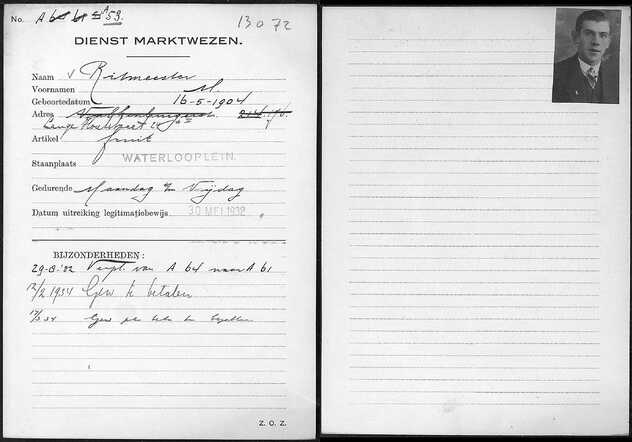 No. A 59.
13072
DIENST MARKTWEZEN.
Naam v Ritmeester
Voornamen M.
Geboortedatum 16-5-1904
Adres
Lange Houtstraat
Artikel fruit
Staanplaats WATERLOOPLEIN.
Gedurende Maandag t/m Vrijdag
Datum uitreiking legitimatiebewijs 30 MEI 1932
BIJZONDERHEDEN:
29-8-'32 Verpl. van A 64 naar A 61
12/2 1934 Gew te betalen
Gew
Z. O. Z.